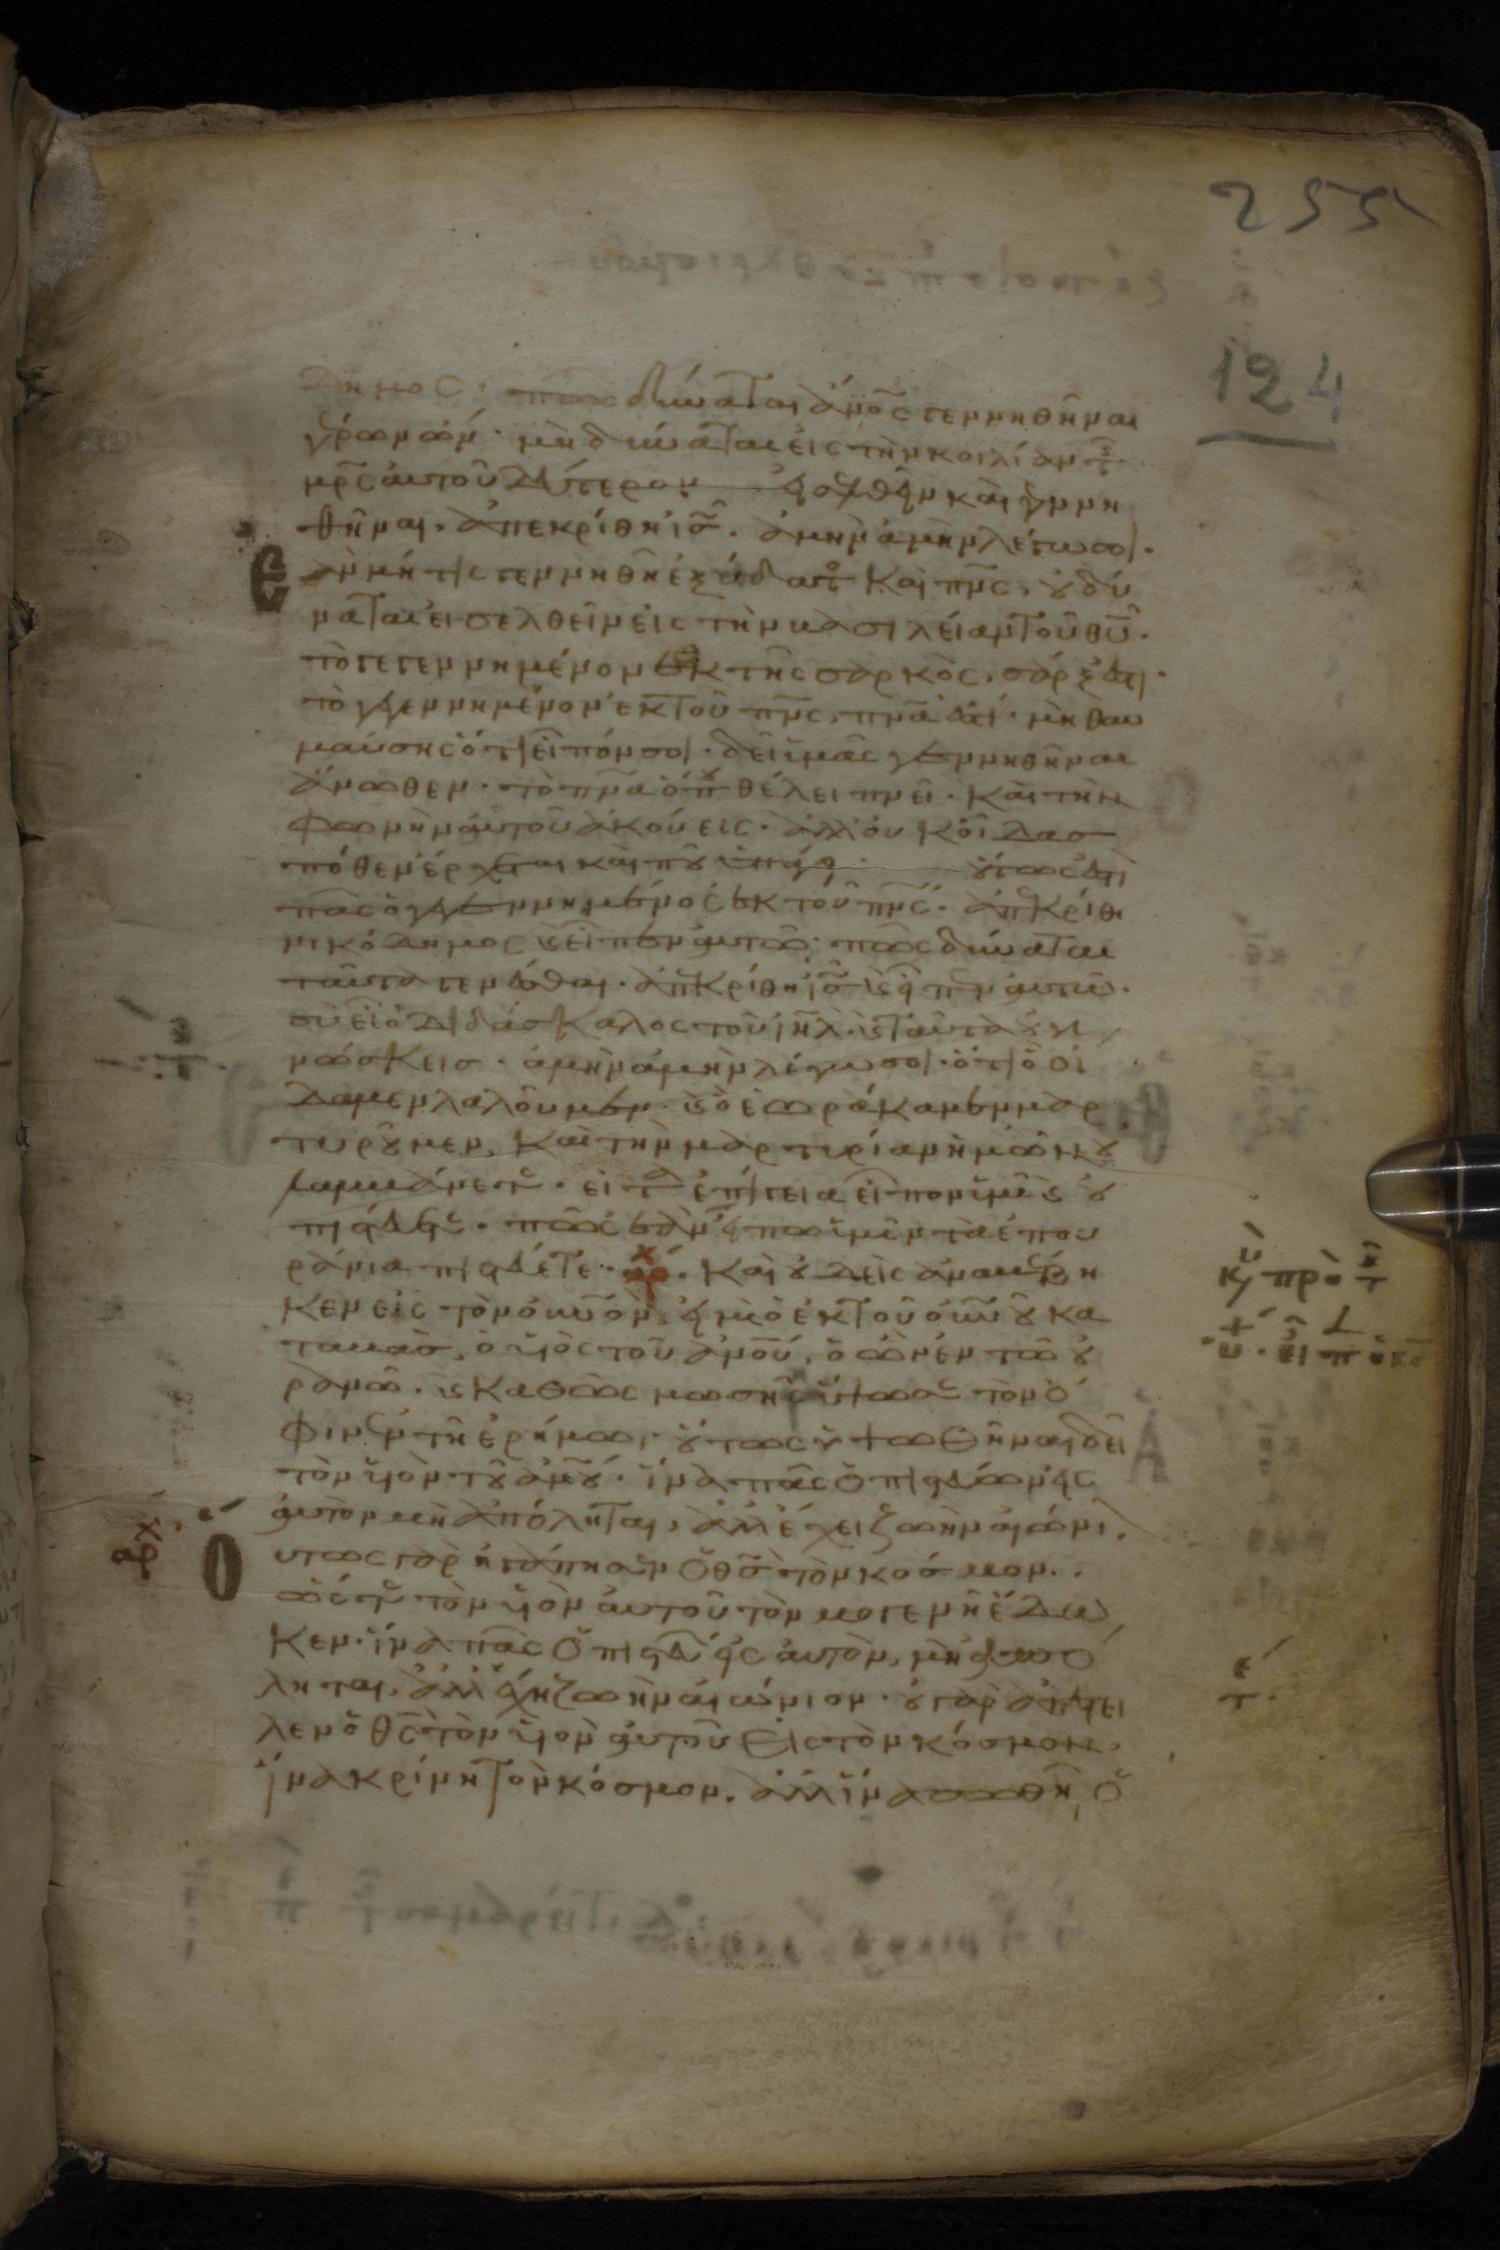 255
124
δημος· πῶς δύναται ἄνος γεννηθῆναι
γέρων ὤν· μὴ δύναται εἰς τὴν κοιλίαν τ
μρς αὐτοῦ δεύτερον εἰσελθεῖν καὶ γεννη
θῆναι. ἀπεκρίθη ὁ ις. ἀμὴν ἀμὴν λέγω σοι.
ἐὰν μή τις γεννηθῆ ἐξ ὕδατος καὶ πνς, οὐ δύ
ναται εἰσελθεῖν εἰς τὴν βασιλείαν τοῦ θυ.
τὸ γεγεννημένον ἐκ τῆς σαρκὸς, σάρξ ἐστι.
τὸ γεγεννημένον ἐκ τοῦ πνς, πνα ἐστι. μὴ θαυ
μάσης ὅτι εἶπόν σοι. δεῖ ὑμᾶς γεννηθῆναι
ἄνωθεν. τὸ πνα ὅπου θέλει πνεῖ. καὶ τὴν
φωνὴν αὐτοῦ ἀκούεις. ἀλλ' οὐκ οἶδας
πόθεν ἔρχεται καὶ ποῦ ὑπάγει. οὕτως ἐστὶ
πᾶς ὁ γεγεννημένος ἐκ τοῦ πνς. ἀπεκρίθη
νικόδημος καὶ εἶπεν αὐτῶ. πῶς δύναται
ταῦτα γενέσθαι. ἀπεκρίθη ις καὶ εἶπεν αὐτῶ.
σὺ εἶ ὁ διδάσκαλος τοῦ ιηλ. καὶ ταῦτα οὐ γι
νώσκεις. ἀμὴν ἀμὴν λέγω σοι. ὅτι ὃ οἴ
δαμεν λαλοῦμεν. καὶ ὃ ἑωράκαμεν μαρ
τυροῦμεν, καὶ τὴν μαρτυρίαν ἡμῶν οὐ
λαμβάνετε. εἰ τὰ ἐπίγεια εἶπον ὑμῖν καὶ οὐ
πιστεύετε. πῶς ἐὰν εἴπω ὑμῖν τὰ ἐπου
ράνια πιστεύετε. αρχ. καὶ οὐδεὶς ἀναβέβη
κεν εἰς τὸν οὐνον, εἰ μὴ ὁ ἐκ τοῦ οὐνου κα
ταβὰς, ὁ υἱὸς τοῦ ἀνου, ὁ ὢν ἐν τῶ οὐ
ρανῶ. καὶ καθὼς μωσῆς ὕψωσε τὸν ὄ
φιν ἐν τῆ ἐρήμω, οὕτως ὑψωθῆναι δεῖ
τὸν υἱὸν τοῦ ἀνου. ἵνα πᾶς ὁ πιστεύων εἰς
αὐτὸν μὴ ἀπόληται, ἀλλ' ἔχει ζωὴν αἰώνι.
Ουτως γὰρ ἠγάπησεν ὁ θς τὸν κόσμον.
ὥστε τὸν υἱὸν αὐτοῦ τὸν μογενῆ ἔδω
κεν. ἵνα πᾶς ὁ πιστεύων εἰς αὐτὸν, μὴ ἀπό
ληται. ἀλλ' ἔχη ζωὴν αἰώνιον. οὐ γὰρ ἀπέστει
λεν ὁ θς τὸν υἱὸν αὐτοῦ εἰς τὸν κόσμον,
ἵνα κρίνη τὸν κόσμον. ἀλλ' ἵνα σωθῆ ὁ